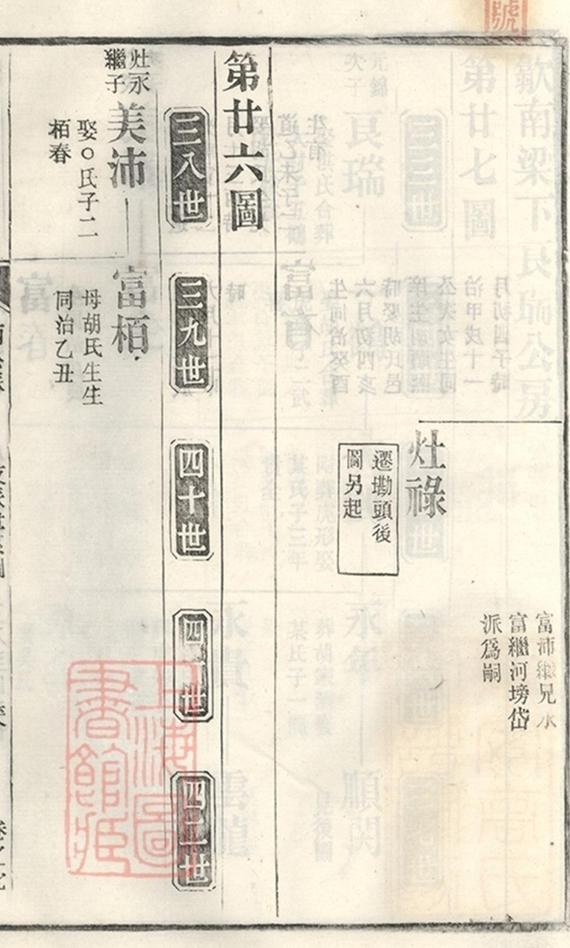 富沛繼兄永
富繼河塝岱
派爲嗣
灶祿
遷塝頭後
圖另起
第廿六圖
三八世
三九世
四十世
四一世
四二世
灶永
繼子
美沛
娶○氏子二
栢春
富栢
母胡氏生生
同治乙丑
上海圖
書館藏
號